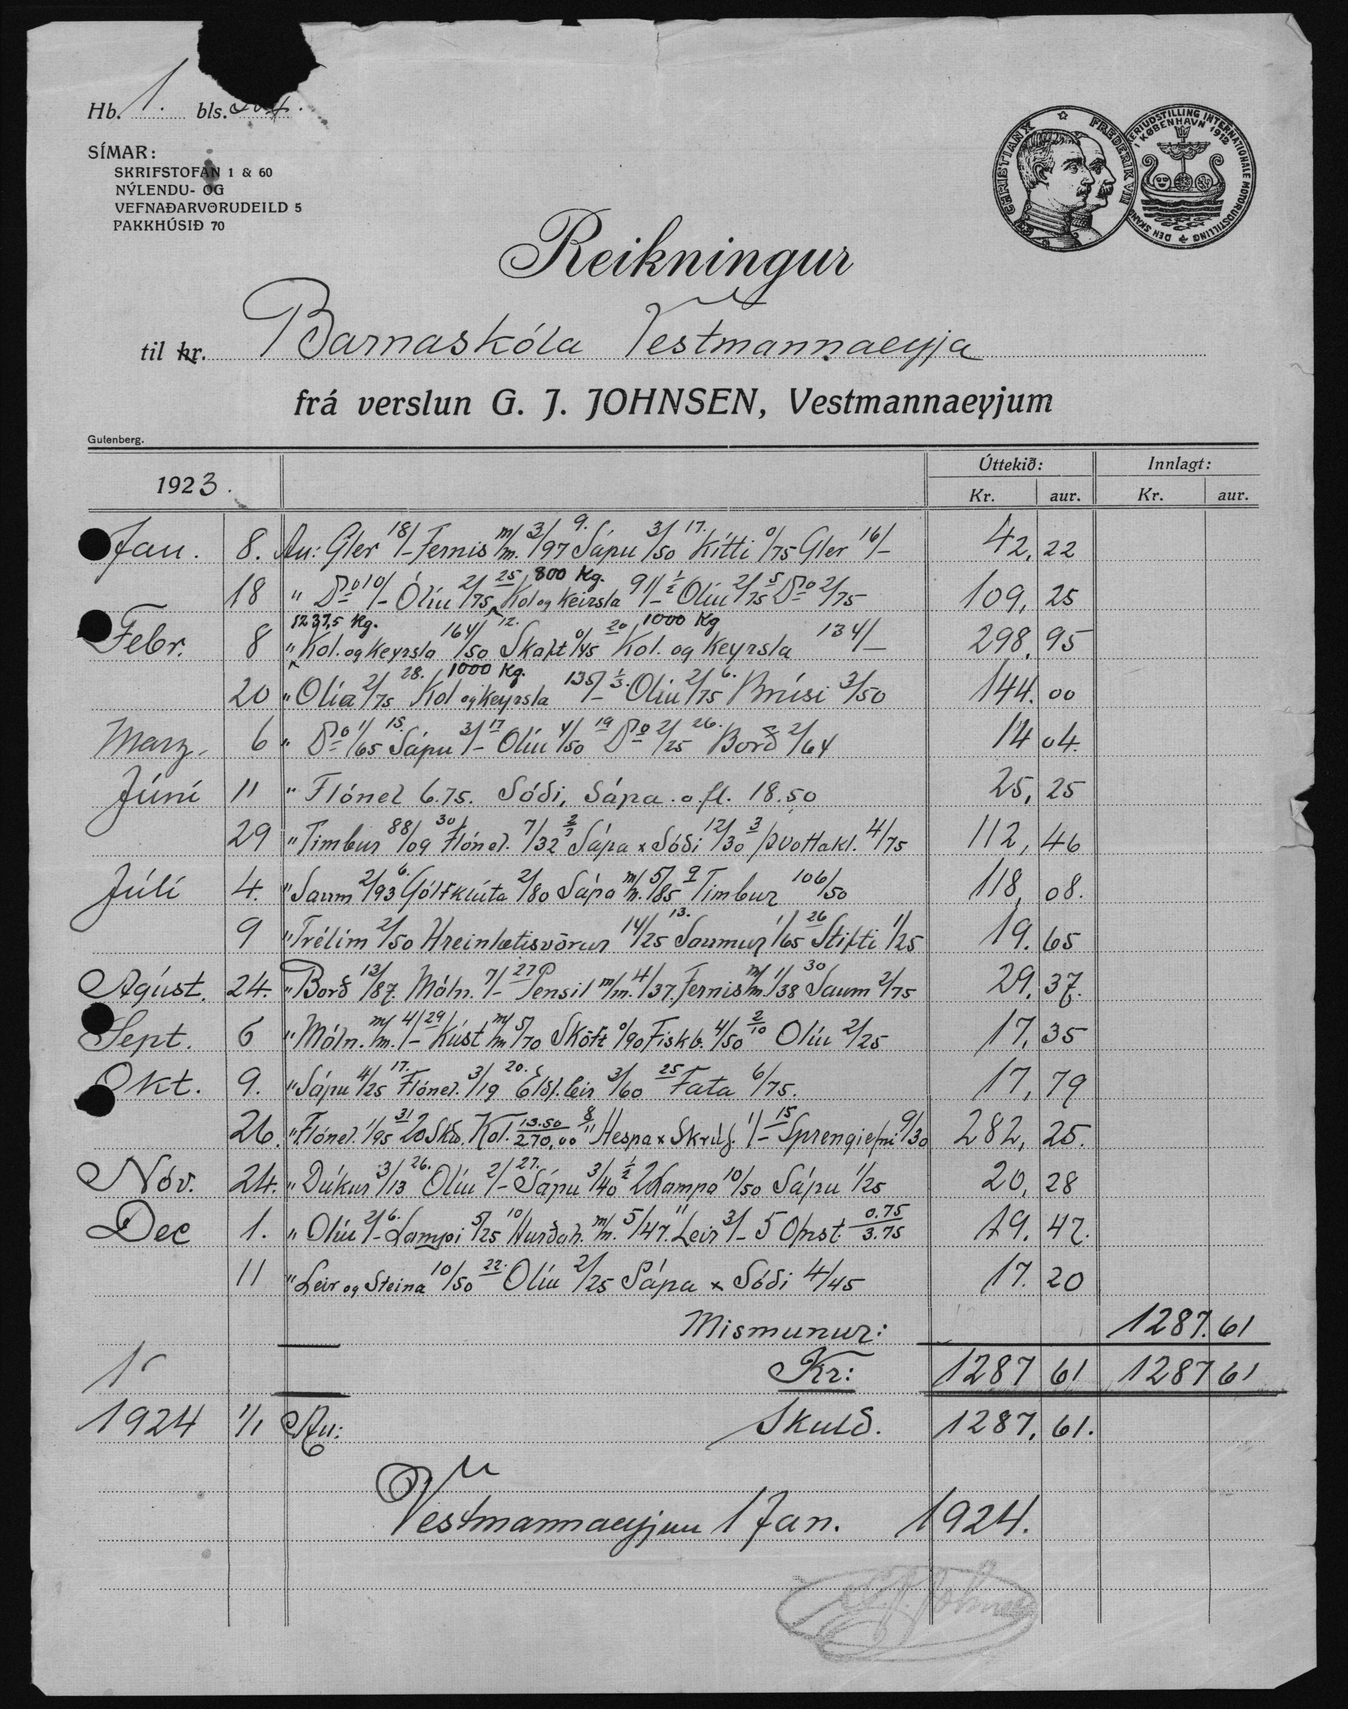 Hb. 1. bls.
SÍMAR:
SKRIFSTOFAN 1 & 60
NÝLENDU- OG
VEFNAÐARVÖRUDEILD 5
PAKKHÚSIÐ 70
CHRISTIAN X ☆ FREDERIK VIII
DEN SKAND. FISKERIUDSTILLING INTERNATIONALE MOTORUDSTILLING
I KØBENHAVN 1912
Reikningur
til hr. Barnaskóla Vestmannaeyja
frá verslun G. J. JOHNSEN, Vestmannaeyjum
Gutenberg.
1923. Úttekið: Innlagt:
Kr. aur. Kr. aur.
Jan. 8. Au: Gler 18/- Fernis m/m. 3/97 9. Sápu 3/50 17. Kítti 0/75 Gler 16/- 42,22
18 " Do 10/- Olíu 2/75 25 Kol og keirsla 800 Kg. 91/- 1/2 Olíu 2/75 5 Do 2/75 109,25
Febr. 8 " Kol. og keyrsla 1237,5 Kg. 164/50 12. Skaft 0/45 20 Kol. og keyrsla 1000 Kg 134/- 298,95
20 " Olía 2/75 28. Kol og keyrsla 1000 Kg. 135/- 1/3. Olíu 2/75 6. Brúsi 3/50 144.00
Marz. 6 " Do 1/65 15. Sápu 3/- 17 Olíu 4/50 19 Do 2/25 26. Borð 2/64 14 04.
Júní 11 " Flónel 6.75. Sódi, Sápa. o.fl. 18.50 25,25
29 " Timbur 88/09 30 Flónel. 7/32 2/7 Sápa & Sódi 12/30 3 Þvottakl. 4/75 112,46
Júlí 4. " Saum 2/93 6. Gólfklúta 2/80 Sápa m/m. 5/85 9 Timbur 106/50 118,08.
9 " Trélím 2/50 Hreinlætisvörur 14/25 13. Saumur 1/65 26 Stifti 1/25 19.65
Agúst. 24. " Borð 13/87. Máln. 7/- 27 Pensil m/m. 4/37. Fernis m/m. 1/38 30 Saum 2/75 29,37.
Sept. 6 " Máln. m/m. 4/- 29 Kúst m/m 5/70 Sköft 0/90 Fiskb. 4/50 2/10 Olíu 2/25 17,35
Okt. 9. " Sápu 4/25 17. Flónel. 3/19 20. Eldf. leir 3/60 25 Fata 6/75. 17,79
26. " Flónel. 1/95 31 20 Skð. Kol. 13.50 270,00 8/11 Hespa & Skrúf. 1/- 15 Sprengiefni 9/30 282,25.
Nóv. 24. " Dúkur 3/13 26. Olíu 2/- 27. Sápu 3/40 1/2 2 Lampa 10/50 Sápu 1/25 20,28
Dec 1. " Olíu 2/- 6. Lampi 5/25 10 Hurðah. m/m. 5/47. 11 Leir 3/- 5 Ofnst. 0.75 3.75 19.47.
11 " Leir og Steina 10/50 22. Olíu 2/25 Sápa & Sódi 4/45 17.20
Mismunur: 1287.61
Kr: 1287 61 1287 61
1924 1/1 Au: Skuld. 1287,61.
Vestmannaeyjum 1 Jan. 1924.
G. J. Johnsen